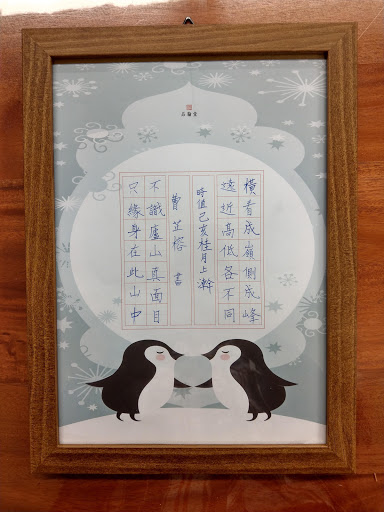 橫看成嶺側成峰
遠近高低各不同
時值己亥桂月上澣
曹芷榕 書
不識廬山真面目
只緣身在此山中